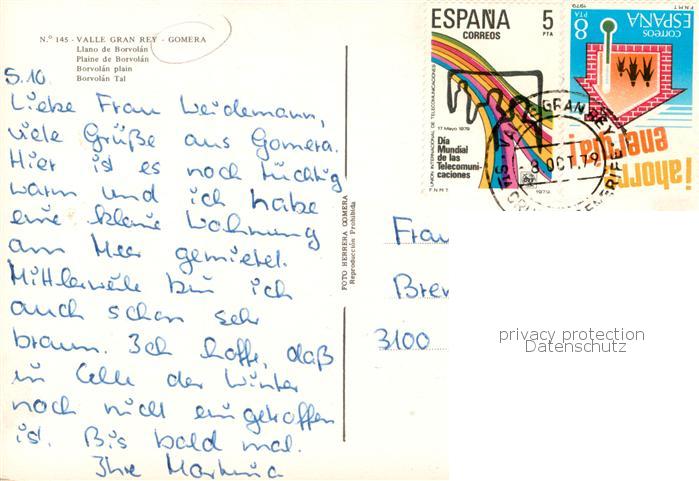 N.º 145 - VALLE GRAN REY - GOMERA
Llano de Borvolán
Plaine de Borvolán
Borvolán plain
Borvolán Tal
5.10.
Liebe Frau Weidemann,
viele Grüße aus Gomera.
Hier ist es noch tüchtig
warm und ich habe
eine kleine Wohnung
am Meer gemietet.
Mittlerweile bin ich
auch schon sehr
braun. Ich hoffe, daß
in Celle der Winter
noch nicht eingetroffen
ist. Bis bald mal.
Ihre Martina
FOTO HERRERA GOMERA
Reproducción Prohibida
ESPAÑA
CORREOS
5
PTA
UNION INTERNACIONAL DE TELECOMUNICACIONES
17 Mayo 1979
Día
Mundial
de las
Telecomuni-
caciones
F.N.M.T.
1979
F.N.M.T.
1979
8
PTA
correos
ESPAÑA
¡ahorre
energía!
GRAN REY
8 OCT. 79
TENERIFE
Frau
Bre
3100
privacy protection
Datenschutz